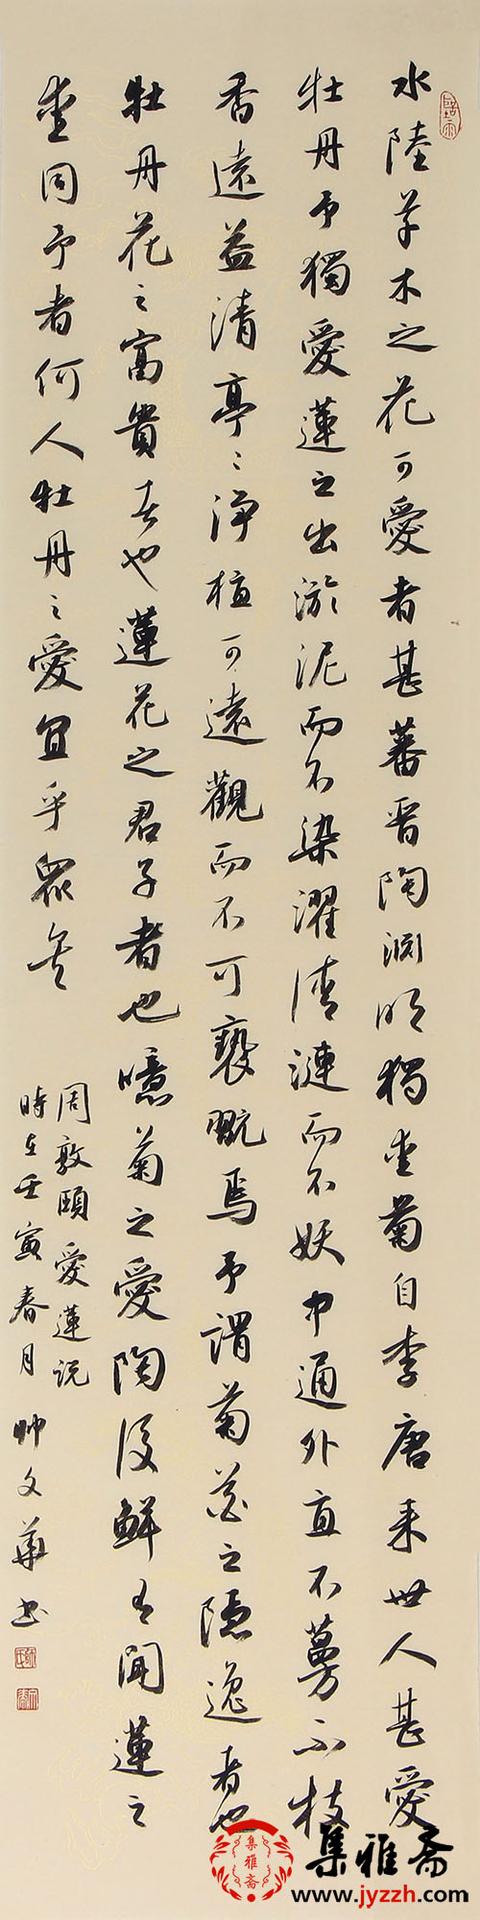 水陸草木之花可愛者甚蕃晉陶渊明獨爱菊自李唐来世人甚愛
牡丹予獨愛蓮之出淤泥而不染濯清漣而不妖中通外直不蔓不枝
香遠益清亭〻淨植可遠觀而不可褻翫焉予謂菊花之隱逸者也
牡丹花之富貴者也蓮花之君子者也噫菊之愛陶後鮮有聞蓮之
爱同予者何人牡丹之愛宜乎眾矣
周敦頤愛蓮説
時在壬寅春月帥文華书
集雅斋
集雅斋
www.jyzzh.com